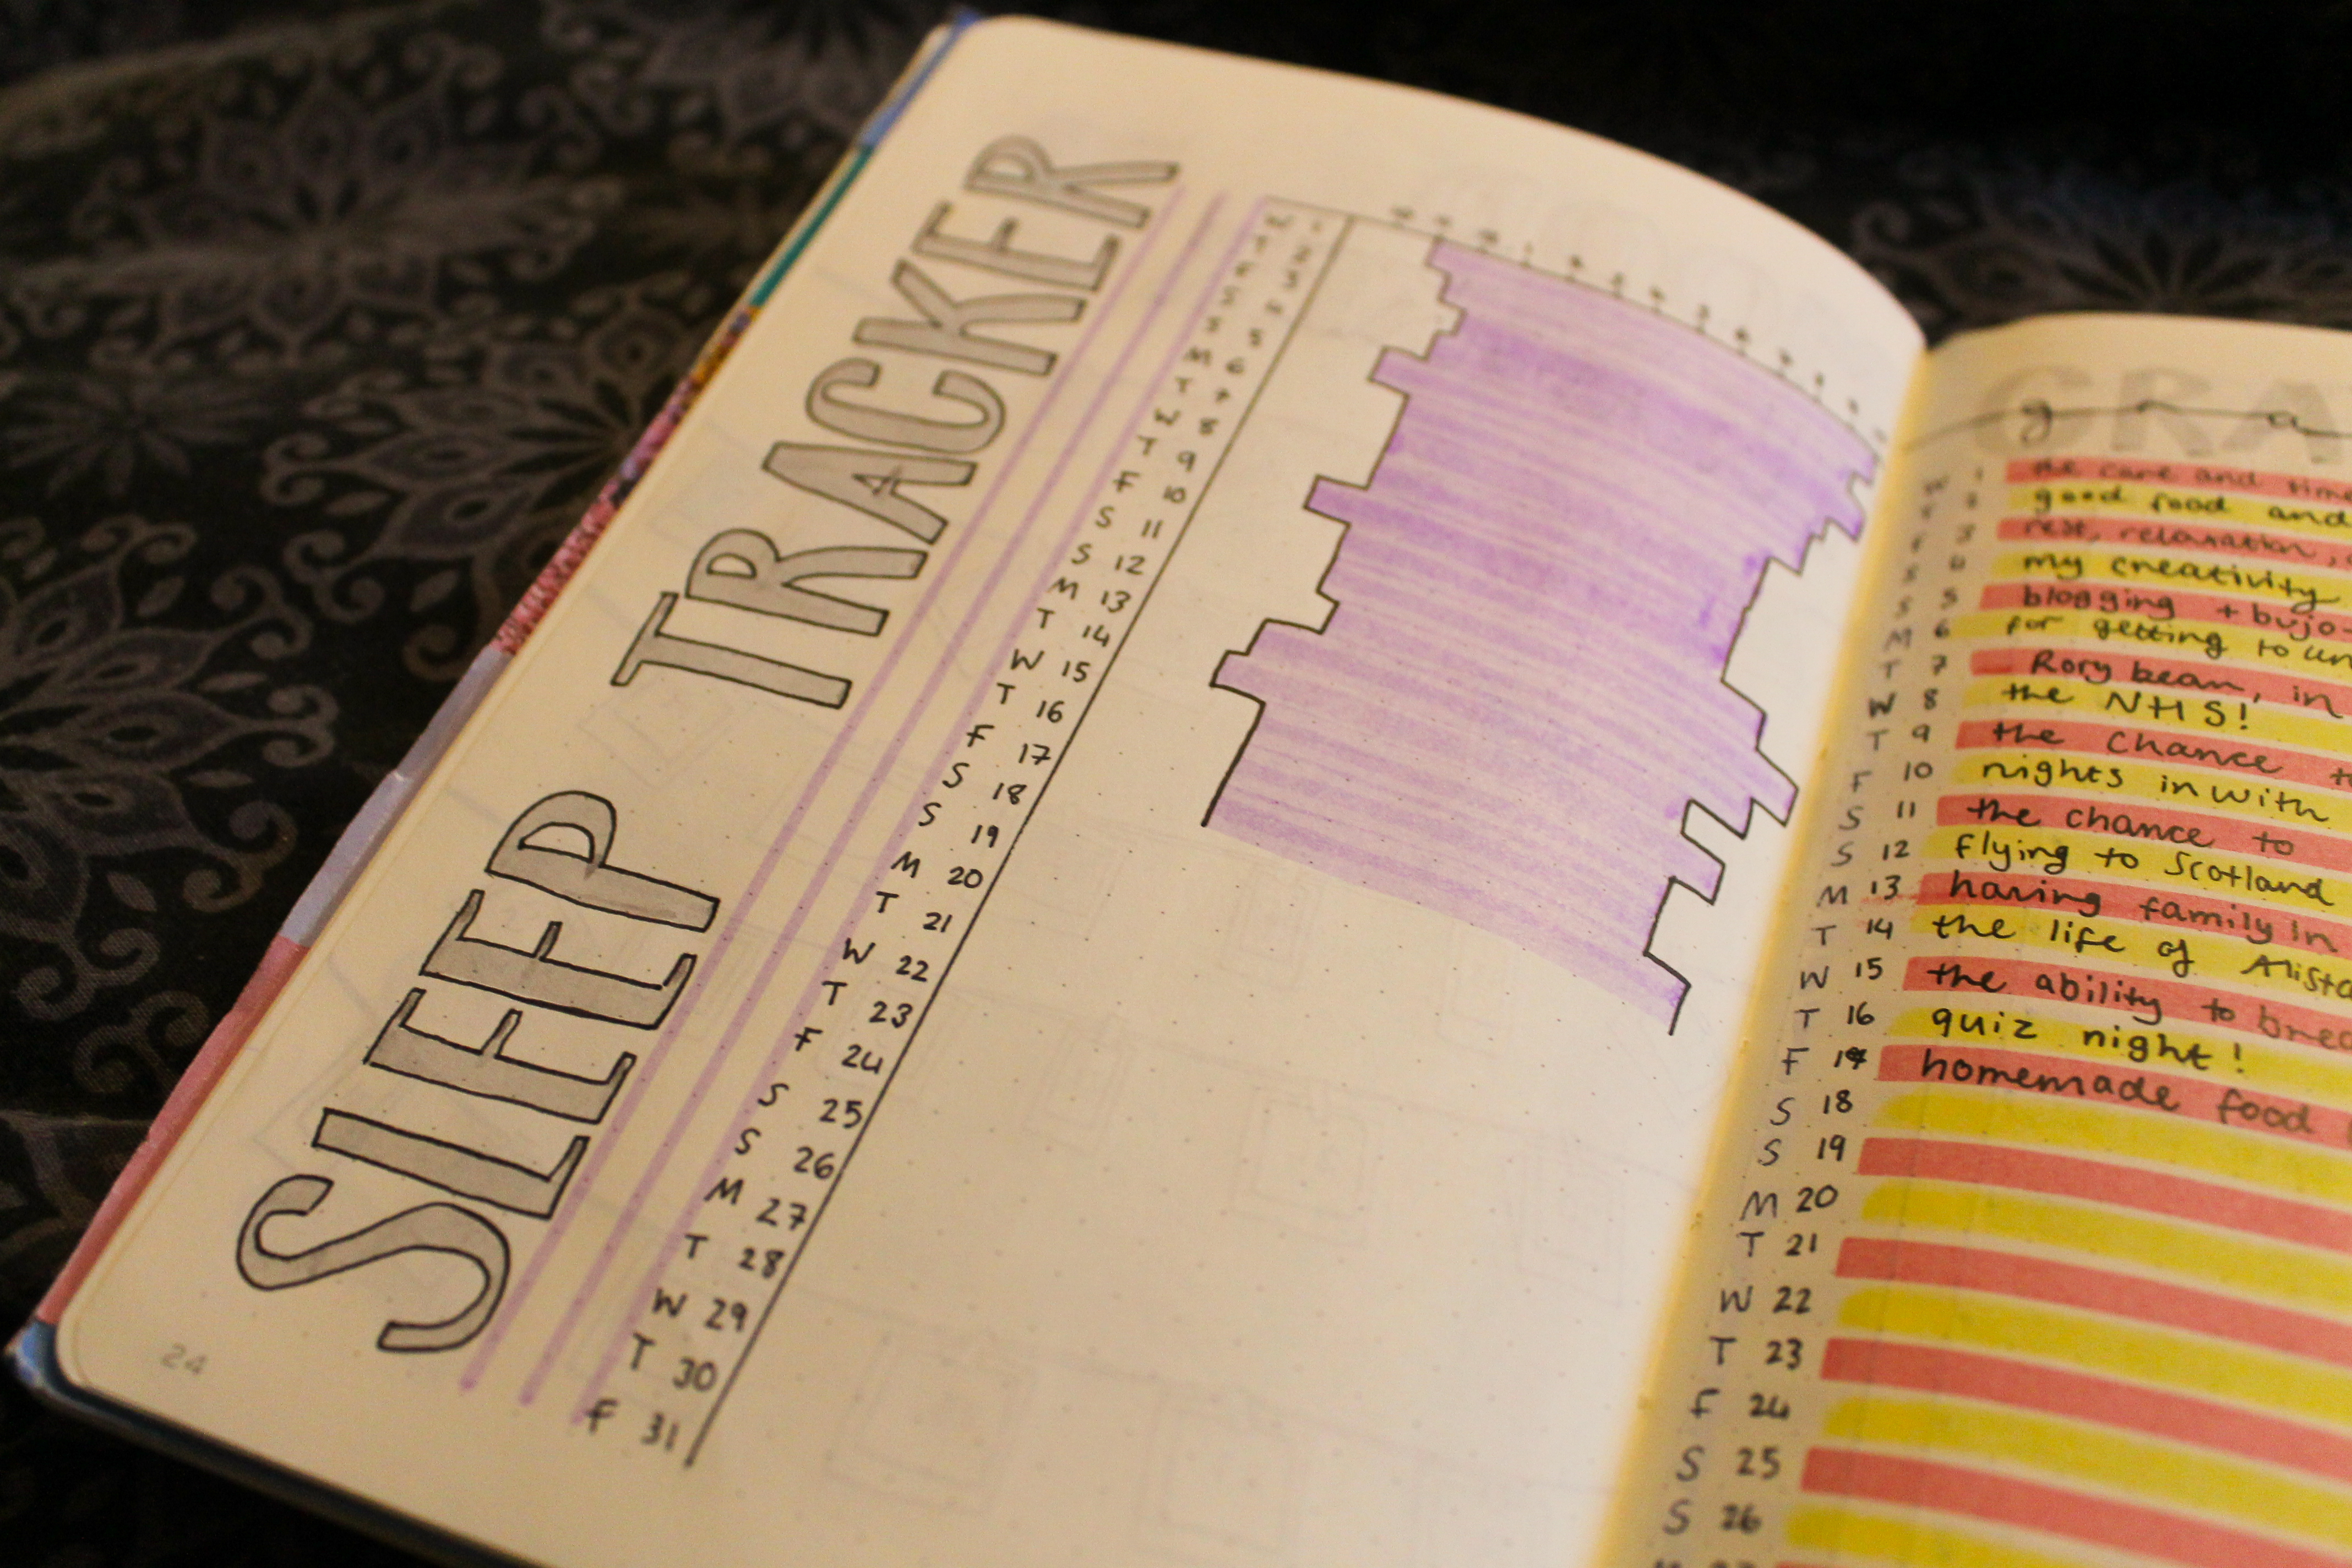 SLEEP TRACKER
W 1
T 2
F 3
S 4
S 5
M 6
T 7
W 8
T 9
F 10
S 11
S 12
M 13
T 14
W 15
T 16
F 17
S 18
S 19
M 20
T 21
W 22
T 23
F 24
S 25
S 26
M 27
T 28
W 29
T 30
F 31
24
GRA
gra
W 1 the care and
T 2 good food and
F 3 rest, relaxation,
S 4 my creativity
S 5 blogging + bujo
M 6 for getting to
T 7 Rory bean, in
W 8 the NHS!
T 9 the chance
F 10 nights in with
S 11 the chance to
S 12 flying to Scotland
M 13 having family in
T 14 the life of
W 15 the ability to
T 16 quiz night!
F 17 homemade food
S 18
S 19
M 20
T 21
W 22
T 23
F 24
S 25
S 26